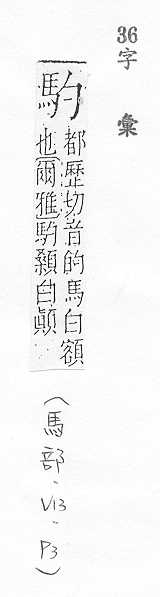 36
字彙
馰
都歷切音的馬白額
也爾雅馰顙白顚
(馬部.V13.P3)